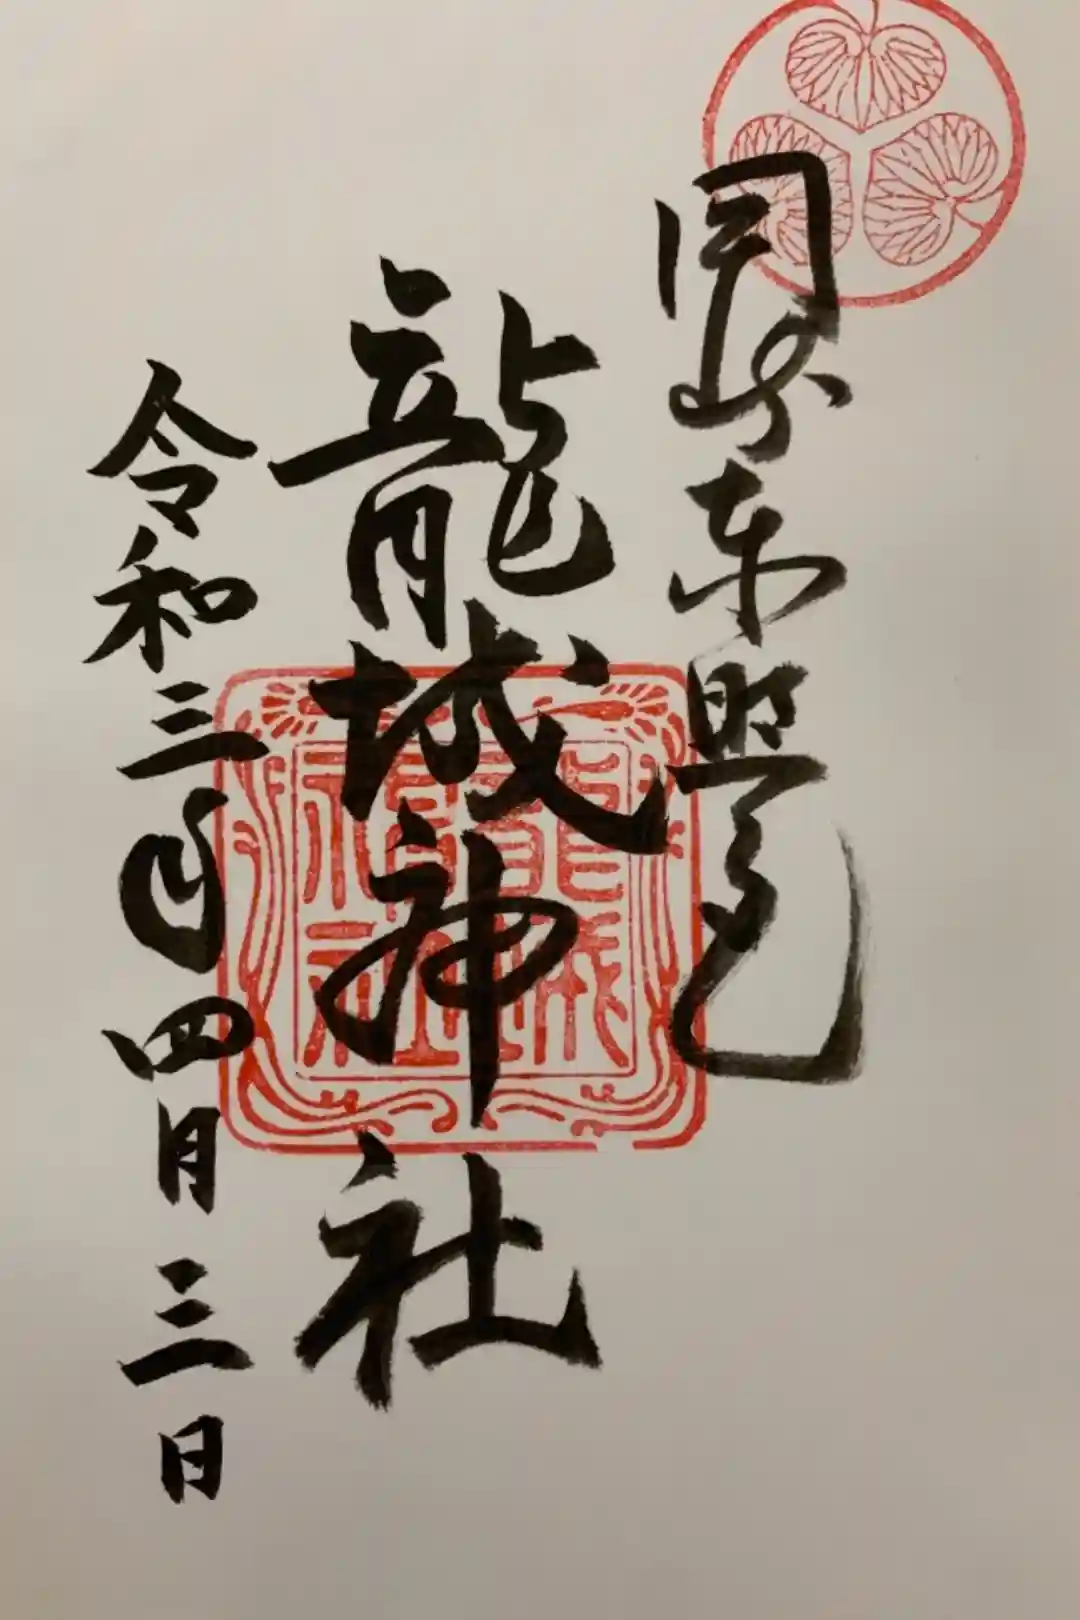 岡崎東照宮
龍城神社
令和三年四月三日
龍城
神社